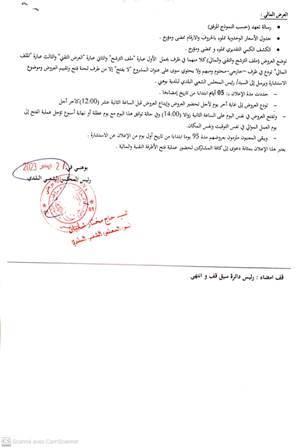 العرض المالي :
- رسالة تعهد (حسب النموذج المرفق)
- جدول الأسعار الوحدوية المملوء بالحروف والأرقام ممضي ومؤرخ .
- الكشف الكمي التقديري مملوء و ممضي ومؤرخ .
توضع العروض (ملف الترشح والتقني والمالي) كلا منهما في ظرف يحمل الأول عبارة "ملف الترشح" والثاني عبارة "العرض التقني" والثالث عبارة "الملف
المالي" توضع في ظرف خارجي مختوم ومبهم ولا يحتوي سوى على عنوان المشروع "لا يفتح" إلا من طرف لجنة فتح وتقييم العروض وموضوع
الاستشارة ويرسل إلى السيد/ رئيس المجلس الشعبي البلدي لبلدية
- حددت مدة الإعلان بـ: 05 أيام ابتداءا من تاريخ إمضائها .
- تودع العروض إلى غاية آخر يوم لأجل تحضير العروض وإيداع العروض قبل الساعة الثانية عشر (12:00) كآخر أجل
- وتفتح العروض في نفس اليوم على الساعة الثانية زوالا (14:00) وفي حالة توافق هذا اليوم مع يوم عطلة أو نهاية أسبوع تؤجل عملية الفتح إلى
يوم العمل الموالي في نفس التوقيت ونفس المكان.
- ويبقى المعنيون ملزمون بعروضهم مدة 95 يوما ابتداءا من تاريخ أول يوم من الإعلان عن الاستشارة .
يعتبر هذا الإعلان بمثابة دعوة إلى كافة المشاركين لحضور عملية فتح الأظرفة التقنية والمالية .
في 2023
رئيس المجلس الشعبي البلدي
قف امضاء : رئيس دائرة سيق قف و انتهى
CS Scanné avec CamScanner